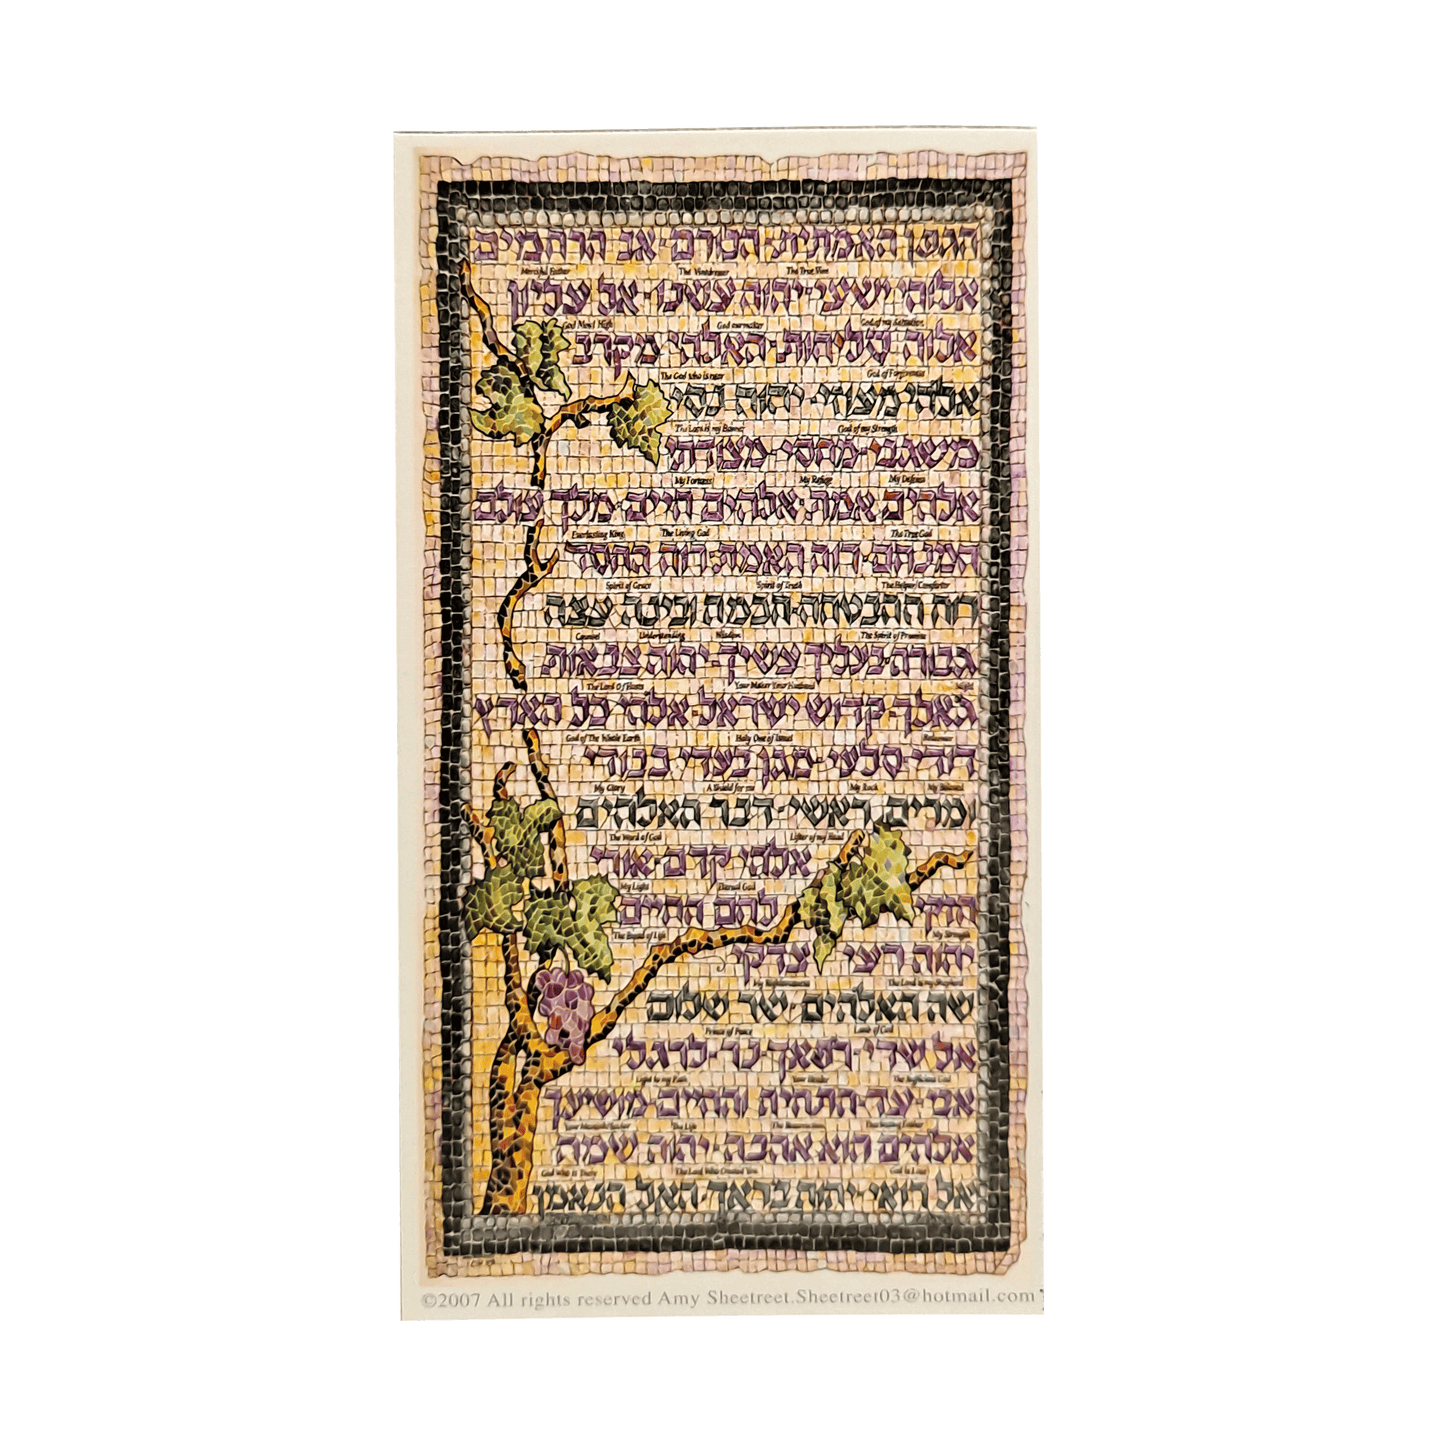 הגפן האמתית·הכורם·אב הרחמים
Merciful Father The Vinedresser The True Vine
אלוהי ישעי·יהוה עשנו·אל עליון
God Most High God our maker God of my Salvation
אלוה סליחות·האלהי מקרב
The God who is near God of Forgiveness
אלהי מעוזי·יהוה נסי
The Lord is my Banner God of my Strength
משגבי·מחסי·מצודתי
My Fortress My Refuge My Defense
אלהים אמת·אלהים חיים·מלך עולם
Everlasting King The Living God The True God
רוח האמת·רוח החסד
Spirit of Grace Spirit of Truth The Helper/Comforter
רוח ההבטחה·חכמה ובינה·עצה
Counsel Understanding Wisdom The Spirit of Promise
גבורה·בעליך עשיך·יהוה צבאות
The Lord Of Hosts Your Maker Your Husband Might
גאלך·קדוש ישראל·אלהי כל הארץ
God of The Whole Earth Holy One of Israel Redeemer
דודי·סלעי·מגן בעדי·כבודי
My Glory A Shield for me My Rock My Beloved
ומרים ראשי·דבר האלהים
The Word of God Lifter of my Head
אלהי קדם·אורי
My Light Eternal God
חזקי לחם החיים
The Bread of Life My Strength
יהוה רעי צדקי
My Righteousness The Lord is my Shepherd
שה האלהים·שר שלום
Prince of Peace Lamb of God
אל שדי·רפאך·נר·לרגלי
Light to my Path Your Healer The Sufficient God
אבי·עד·התחיה והחיים·מושיעך
The Life The Resurrection Everlasting Father
אלהים הוא אהבה·יהוה שמה
The Lord Who Created You God is Love
אל רואי·יהוה בראך·האל הנאמן
©2007 All rights reserved Amy Sheetreet.Sheetreet03@hotmail.com